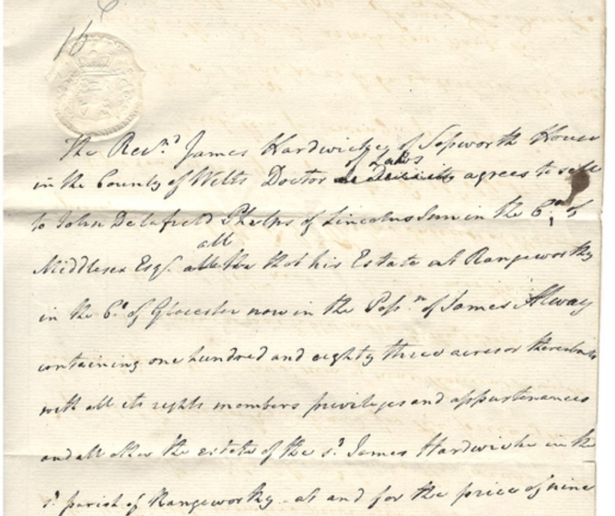 16
The Rev.d James Hardwicke of Sopworth House
of Laws
in the County of Wilts Doctor agrees to sell
to John Delafield Phelps of Lincolns Inn in the Co. of
all
Middlesex Esq. that his Estate at Rangeworthy
in the Co. of Glocester now in the Poss.n of James Alway
containing one hundred and eighty three acres or thereabouts
with all its rights members privileges and appurtenances
and all other the estate of the sd. James Hardwicke in the
sd. parish of Rangeworthy at and for the price of nine